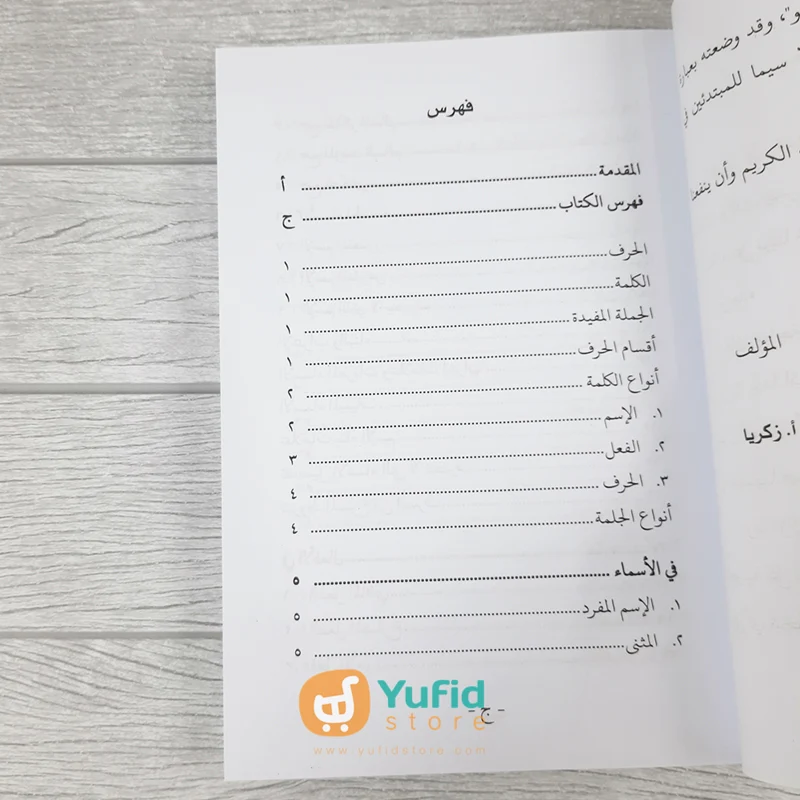 و"، وقد وضعته بعبارة
سيما للمبتدئين في
الكريم وأن ينفعنا
المؤلف
أ. زكريا
فهرس
المقدمة .......... أ
فهرس الكتاب .......... ج
الحرف .......... ١
الكلمة .......... ١
الجملة المفيدة .......... ١
أقسام الحرف .......... ١
أنواع الكلمة .......... ٢
١. الإسم .......... ٢
٢. الفعل .......... ٣
٣. الحرف .......... ٤
أنواع الجلمة .......... ٤
في الأسماء .......... ٥
١. الإسم المفرد .......... ٥
٢. المثنى .......... ٥
- ج -
Yufid
store
www.yufidstore.com